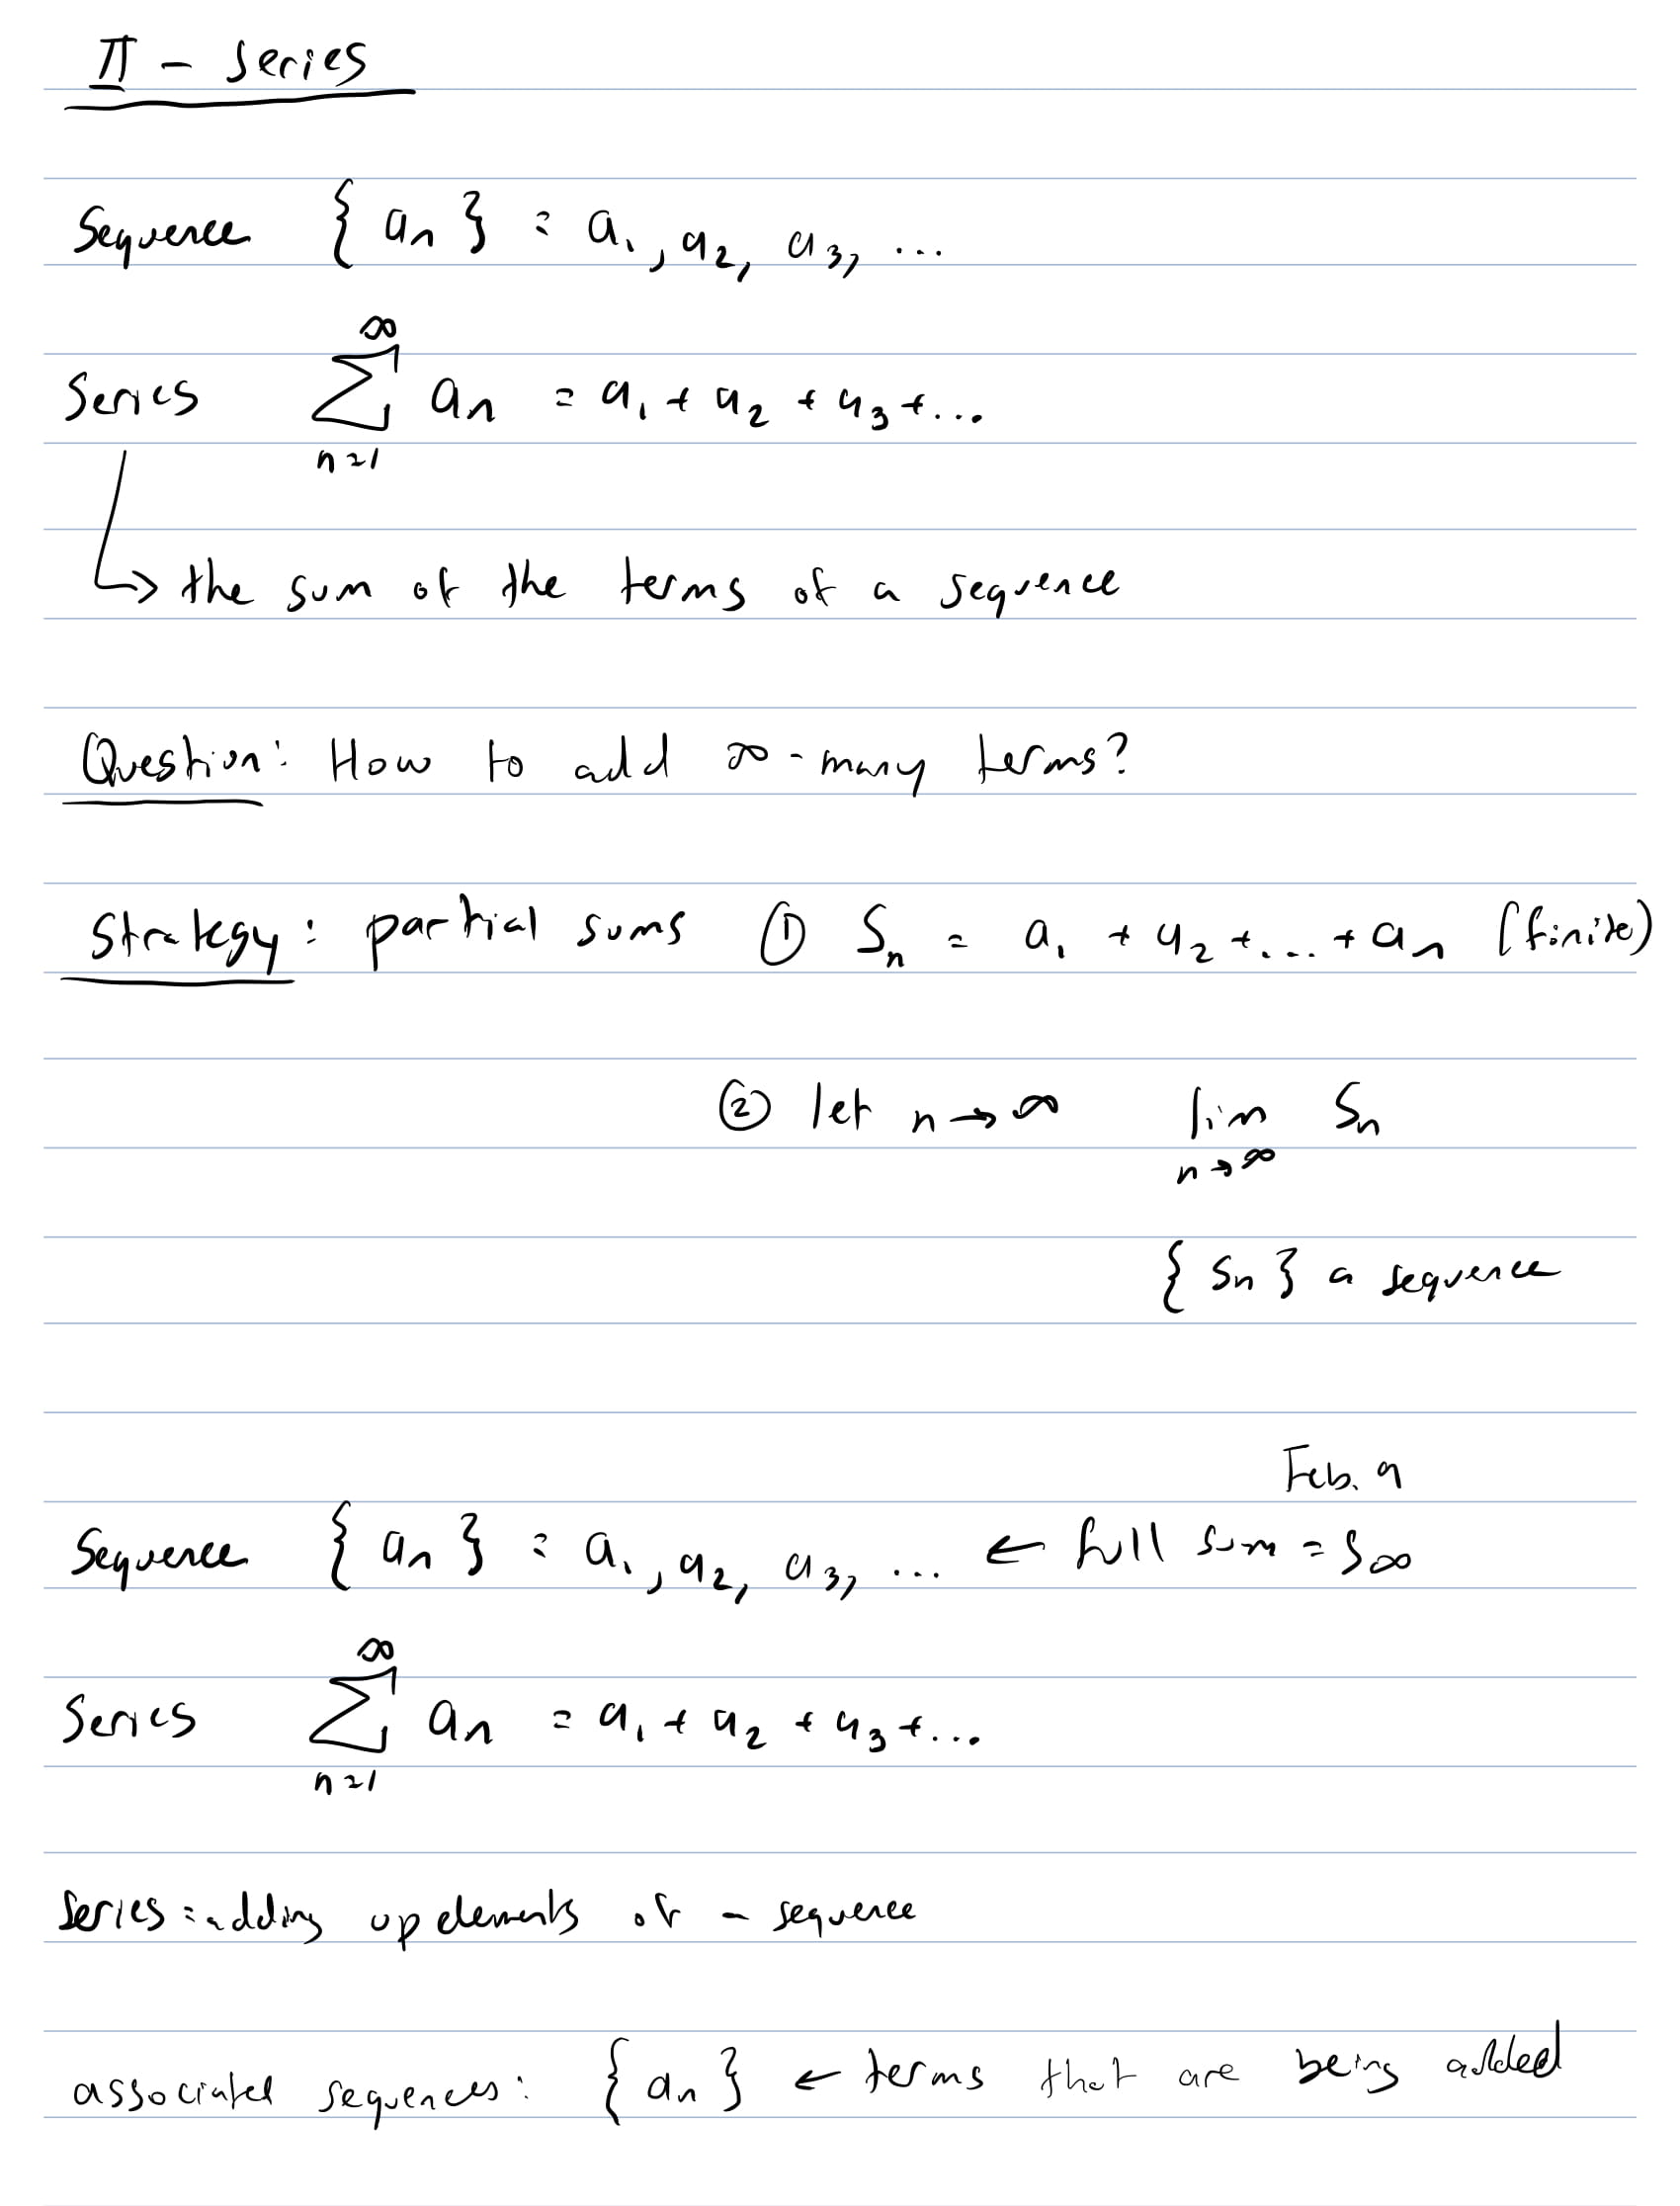 II - Series
Sequence { an } = a1, a2, a3, ...
∞
Series ∑ an = a1 + a2 + a3 + ...
n=1
↳ the sum of the terms of a sequence
Question: How to add ∞-many terms?
Strategy: partial sums ① Sn = a1 + a2 + ... + an (finite)
② let n → ∞ lim Sn
n → ∞
{ Sn } a sequence
Feb. 9
Sequence { an } = a1, a2, a3, ... ← full sum = S∞
∞
Series ∑ an = a1 + a2 + a3 + ...
n=1
Series = adding up elements of a sequence
associated sequences: { an } ← terms that are being added